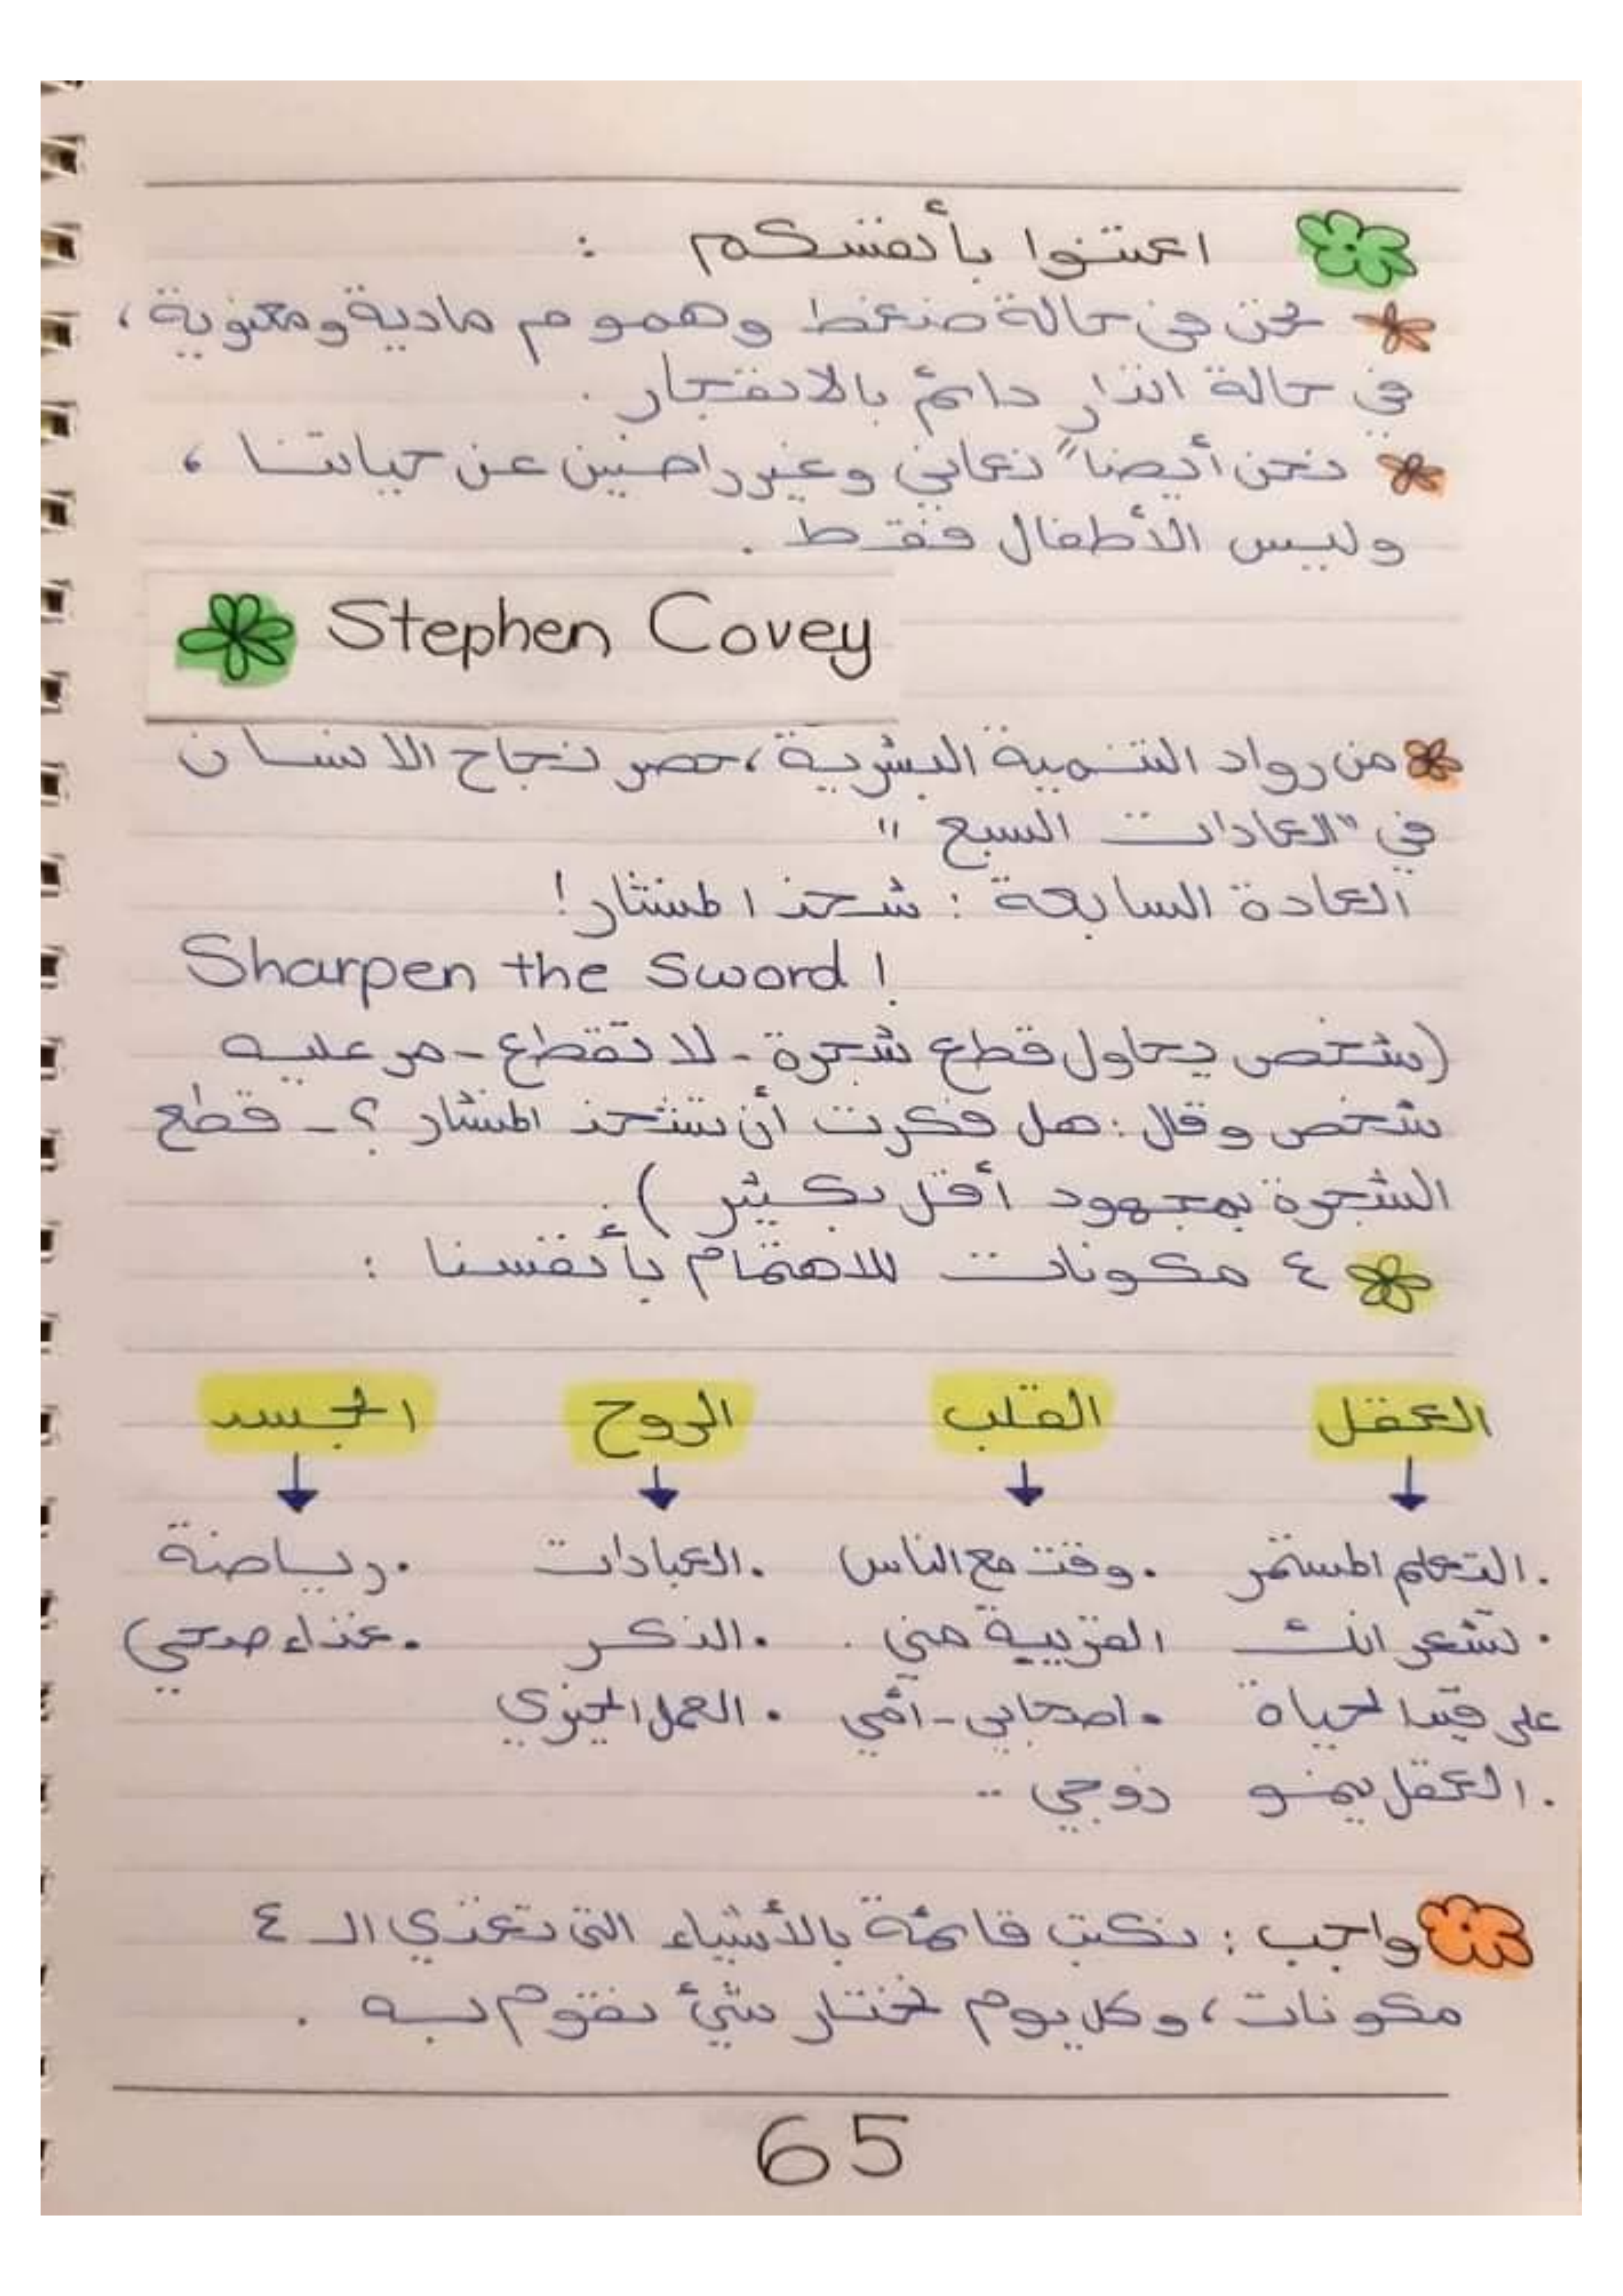 اعتنوا بأنفسكم :
نحن في حالة ضغط وهموم مادية ومعنوية ،
في حالة انذار دائم بالانفجار .
نحن أيضا" نعاني وغير راضين عن حياتنا ،
وليس الأطفال فقط .
Stephen Covey
من رواد التنمية البشرية ، حصر نجاح الانسان
في "العادات السبع "
العادة السابعة : شحذ المنشار!
Sharpen the Sword !
(شخص يحاول قطع شجرة - لا تقطع - مر عليه
شخص وقال : هل فكرت أن تشحذ المنشار ؟ - قطع
الشجرة بمجهود أقل بكثير ) .
٤ مكونات للاهتمام بأنفسنا :
العقل القلب الروح الجسد
. التعلم المستمر . وقت مع الناس . العبادات . رياضة
. تشعر انك القريبة مني . . الذكر . غذاء صحي
على قيد الحياة . اصحابي - أمي . العمل الخيري
. العقل ينمو زوجي ..
واجب : نكتب قائمة بالأشياء التي تغذي الـ ٤
مكونات ، وكل يوم نختار شيئ نقوم به .
65